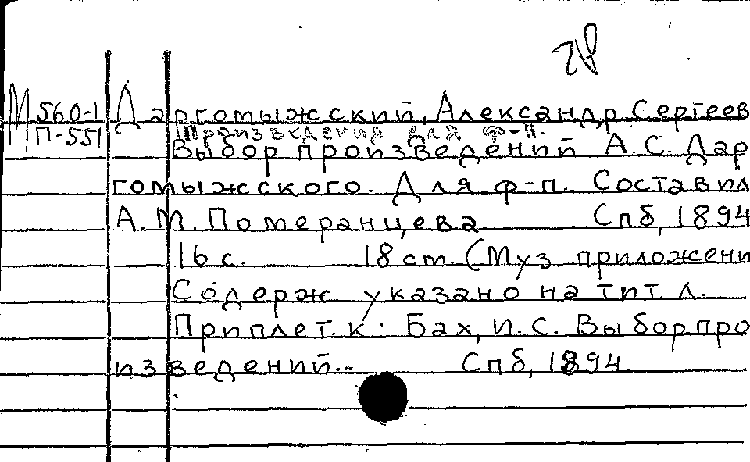 М 560-1
П-551
Даргомыжский, Александр Сергеев
Произведения для ф-п.
Выбор произведений А.С. Дар
гомыжского. Для ф-п. Составил
А.М. Померанцева Спб, 1894
16 с. 18 cm. (Муз приложени
Содерж указано на тит л.
Приплет. к: Бах, И.С. Выбор про
изведений.. Спб, 1894